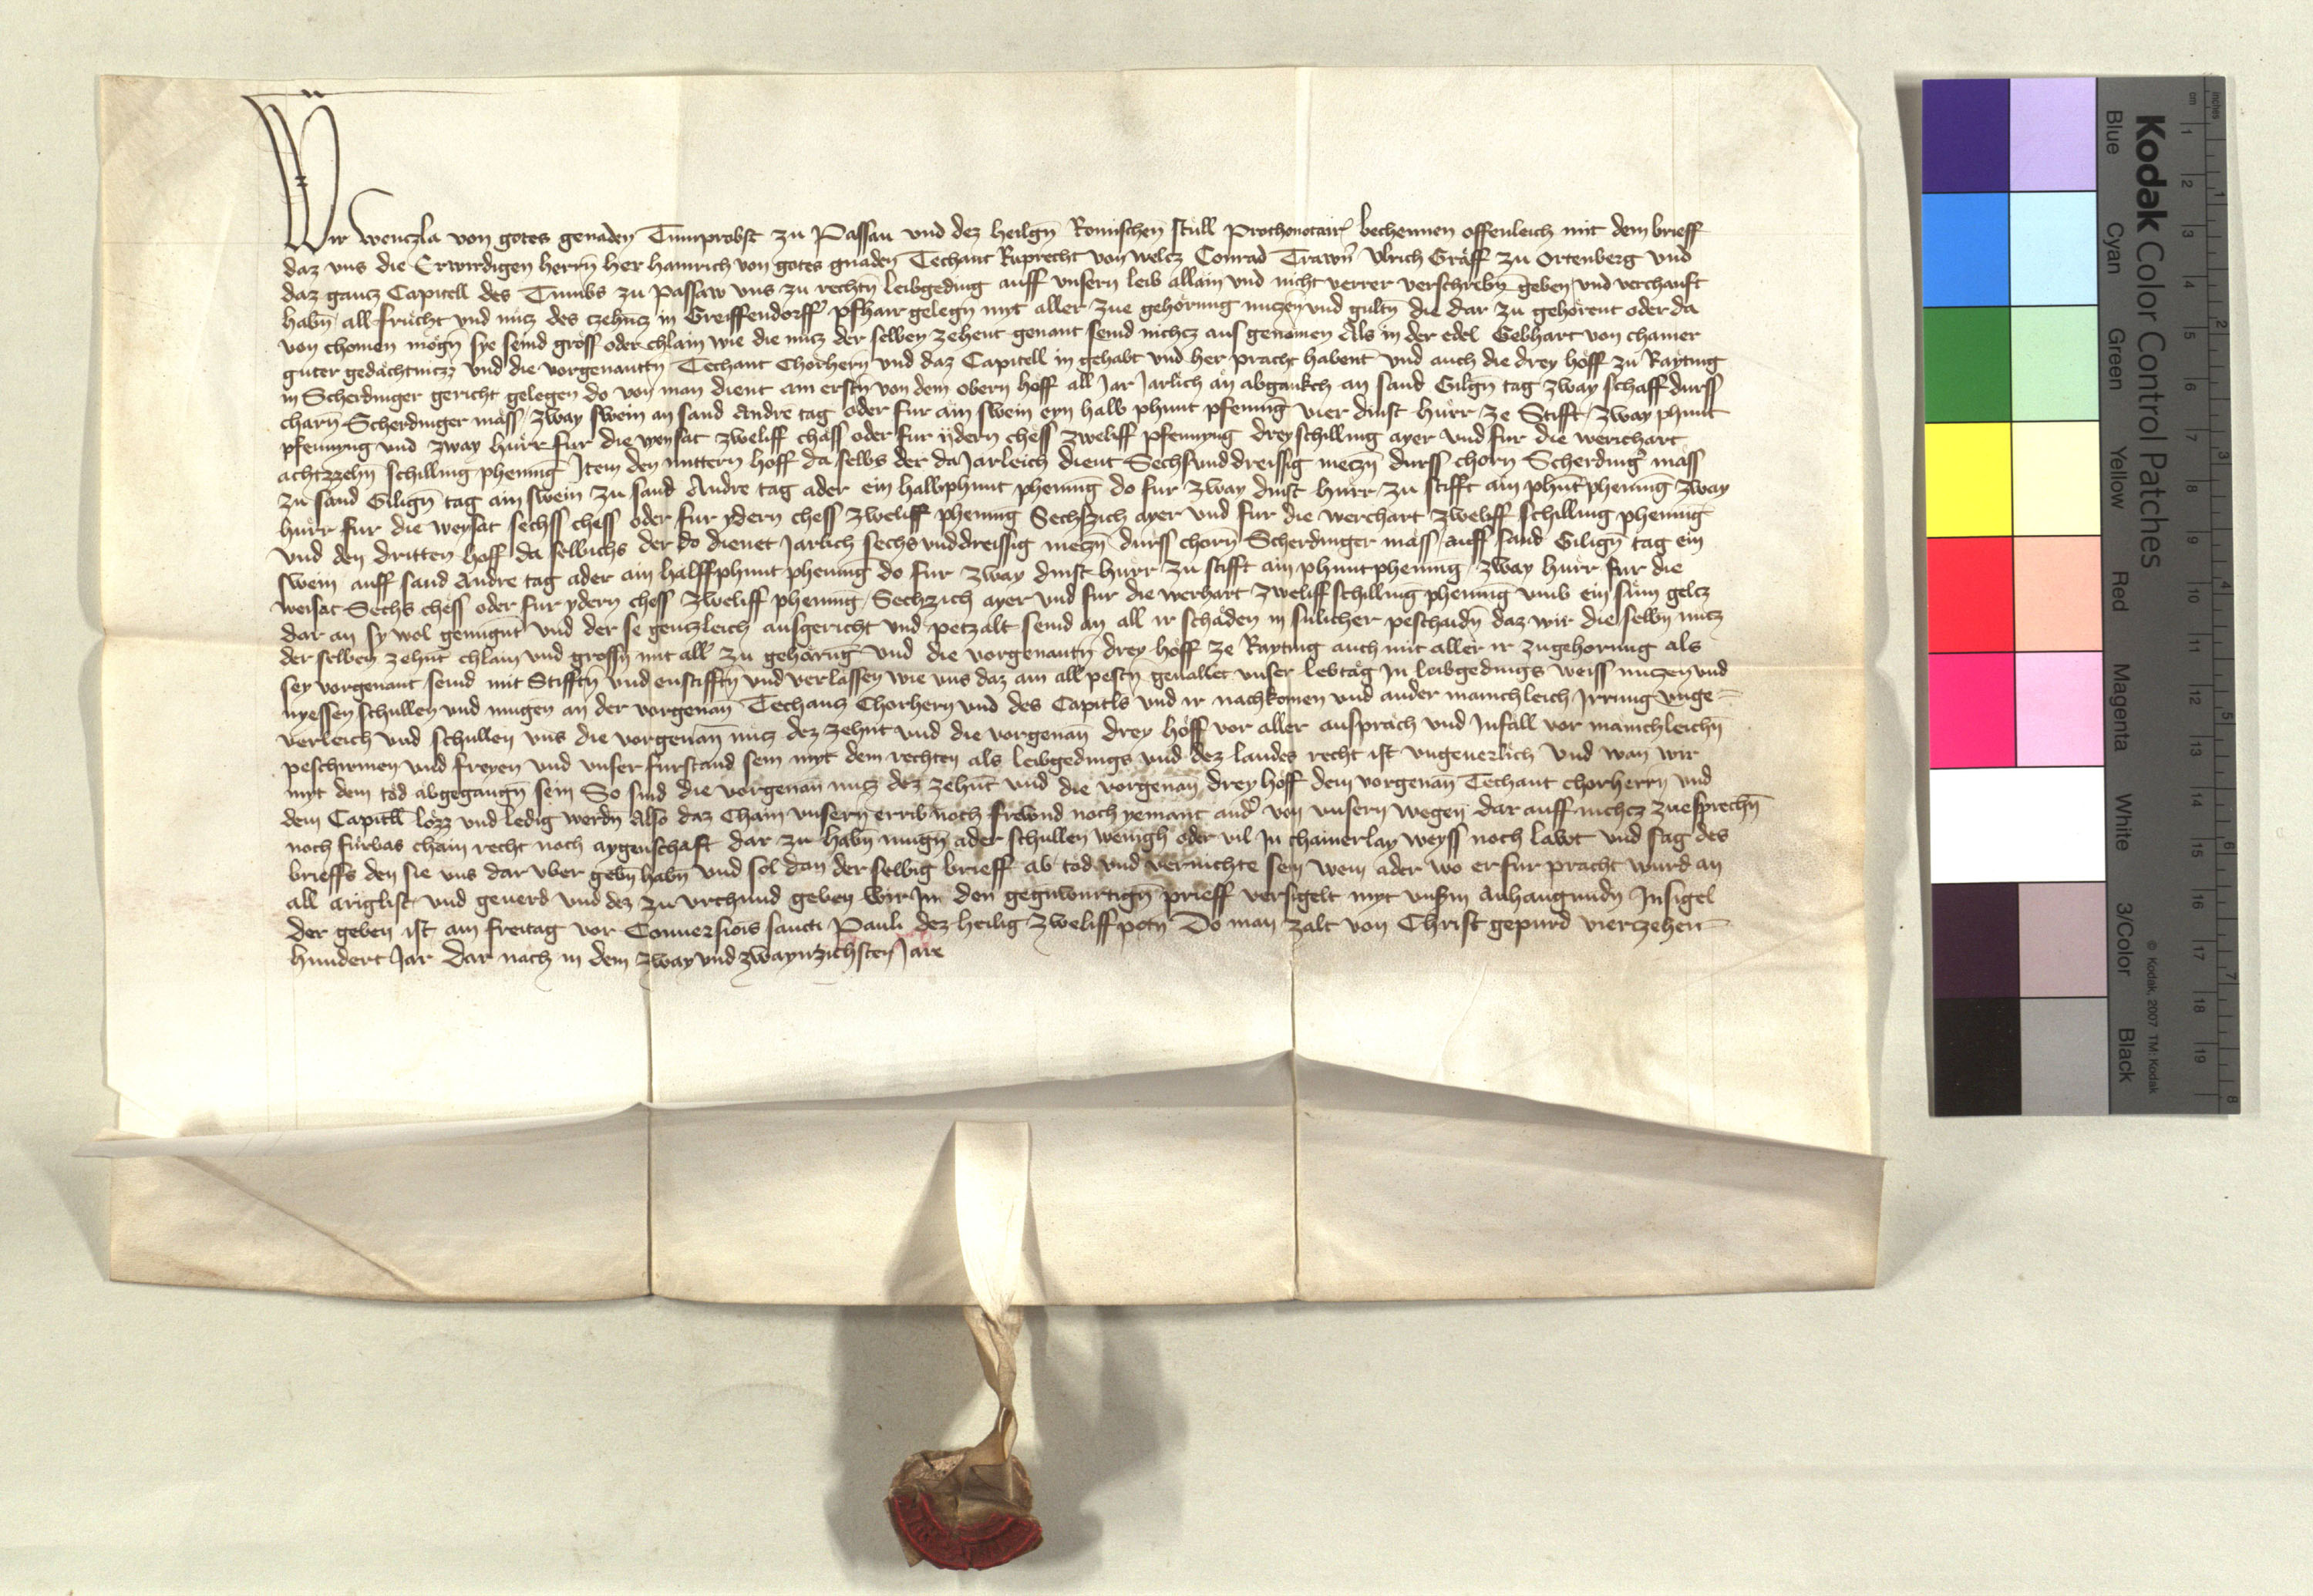 Wir Wenczla von gotes genaden Tumprobst zu Passau vnd dez heilgn̄ Romischen̄ stuͤll Prothonotari bechennen offenleich mit dem brieff
daz vns die Erwirdigen herrn̄ her hainrich von gotes gnaden Techant Ruprecht von welcz Conrad Trawn̄ Vlrich Graff zu Ortenberg vnd
daz gancz Capitell des Tumbs zu Passaw vns zu rechtn̄ leibgeding auff vnsern leib allain vnd nicht verrer verschribn̄ geben vnd verchauft
habn̄ all frucht vnd nucz des czehncz in Greiffendorffer pfharr gelegn̄ myt aller zue gehorung nuczen vnd gultn̄ die dar zu gehorent oder da
von chomen mogn̄ sye seind gröss oder chlain wie die nucz der selben zehent genant seind nichcz aus genomen Als in der edel Gebhart von chamer
guter gedachtnuczz vnd die vorgenanttn̄ Techant Chorhern̄ vnd daz Capitell in gehabt vnd her pracht habent vnd auch die drey hoff zu Rayting
in Scherdinger gericht gelegen do von man dient am erstn̄ von dem obern hoff all Jar Jarlich an abgankch an sand Gilgn̄ tag zway schaff durss
charn̄ Scherdinger mass zway swein an sand Andre tag oder fur ain swein eyn halb phunt pfennig vier dinst hurr ze Stifft zway phunt
pfennyng vnd zway hurr fur die weysat zweliff chass oder fur ydern chess zweliff pfennyng drey schilling ayer vnd fur die werichart
achtzzehn schilling phening Item den mittern hoff da selbs der da Jarleich dient Sechsvnddreissig meczn̄ durss chorn Scherdinger mass
zu sand Gilign̄ tag ain swein zu sand Andre tag ader ein halbphunt phening do fur zway dinst hurr zu stifft ain phunt phening zway
hurr fur die weysat sechss chess oder fur ydern chess zweliff phening Sechszich ayer vnd fur die werchart zweliff schilling phening
vnd den dritten hoff da selbichs der do dienet Jarlich sechsvnddreissig meczn̄ durss chorn̄ Scherdinger mass auff sand Gilign̄ tag ein
swein auff sand Andre tag ader ain halffphunt phening do fur zway dinst hurr zu stifft ain phunt phening zway hurr fur die
weisat Sechs chess oder fur ydern chess zweliff phening Sechzich ayer vnd fur die werhart zweliff schilling phening vmb ein sum gelcz
dar an sy wol genugnt vnd der se genczleich ausgericht vnd petzalt seind an all ir schaden in sulicher peschaidn̄ daz wir die selbn̄ nucz
der selben zehnt chlain vnd grossn̄ mit aller zu gehorung vnd die vorgenantn̄ drey hoff ze Rayting auch mit aller ir zugehorung als
sey vorgenant seind mit Stifftn̄ vnd enstifftn̄ vnd verlassen wie vns daz am all pestn̄ geuallet vnser lebtag In leibgedings weiss nuczen vnd
nyessen schullen vnd mugen an der vorgenan̄ Techancz Chorhern vnd des Capitls vnd ir nachkomen vnd ander mainchleich Irrung vnge=
verleich vnd schullen vns die vorgenan̄ nucz dez zehnt vnd die vorgenan̄ drey hoff vor aller ansprach vnd Infall vor mainchleichn̄
peschirmen vnd freyen vnd vnser furstand sein myt dem rechten als leibgedings vnd dez landes recht ist vngeuerlich Vnd wan wir
myt dem tod abgegangn̄ sein So sind die vorgenan̄ nucz dez zehnt vnd die vorgenan̄ drey hoff dem vorgenan̄ Techant chorherrn vnd
dem Capitell lozz vnd ledig werdn̄ Also daz Chain vnsern erib noch frewnd noch yemant ander von vnsern wegen dar auff nichcz zuesprechn̄
noch furbas chain recht noch aygenschaft dar zu habn̄ mugn̄ ader schullen wenigh oder vil In chainerlay weyss noch lawt vnd sag des
brieffs den sie vns dar vber gebn̄ habn̄ vnd sol dan der selbig brieff ab tod vnd vernichte sein wem ader wo er fur pracht wurd an
all ariglist vnd geuerd vnd dez zu vrchund geben wir In den gegnburtign̄ prieff versigelt myt vnserm Anhangundn̄ Insigel
der geben ist am freitag vor Conuersionis sancti Pauli dez heilig zweliffpotn̄ Do man zalt von Christ gepurd vierczehen=
hundert Jar dar nach in dem zway vnd zwaynzichsten Jare
Kodak Color Control Patches
Blue Cyan Green Yellow Red Magenta White 3/Color Black
© Kodak, 2007 TM: Kodak
cm 1 2 3 4 5 6 7 8 9 10 11 12 13 14 15 16 17 18 19
inches 1 2 3 4 5 6 7 8